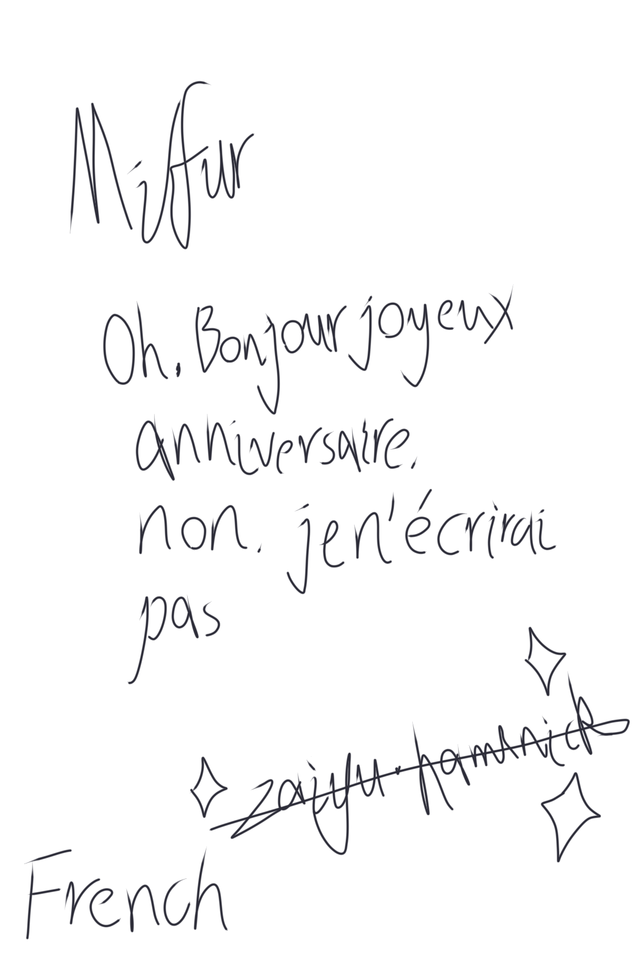 Mifur
Oh. Bonjour joyeux
anniversaire.
non. je n'écrirai
pas
zaiyu.
French